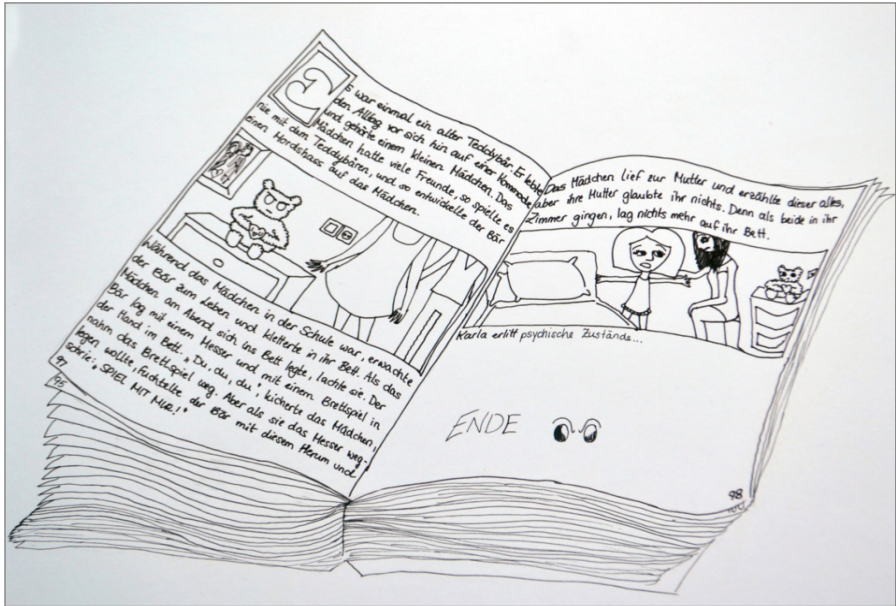 Es war einmal ein alter Teddybär. Er lebte
den Alltag vor sich hin auf einer Kommode
und gehörte einem kleinen Mädchen. Das
Mädchen hatte viele Freunde, so spielte es
nie mit dem Teddybären, und so entwickelte der Bär
einen Mordshass auf das Mädchen.
Während das Mädchen in der Schule war, erwachte
der Bär zum Leben und kletterte in ihr Bett. Als das
Mädchen am Abend sich ins Bett legte, lachte sie. Der
Bär lag mit einem Messer und mit einem Brettspiel in
der Hand im Bett. „Du, du, du", kicherte das Mädchen,
nahm das Brettspiel weg. Aber als sie das Messer weg-
legen wollte, fuchtelte der Bär mit diesem Herum und
schrie: „SPIEL MIT MIR!"
97
95
Das Mädchen lief zur Mutter und erzählte dieser alles,
aber ihre Mutter glaubte ihr nichts. Denn als beide in ihr
Zimmer gingen, lag nichts mehr auf ihr Bett.
Karla erlitt psychische Zustände...
ENDE
98